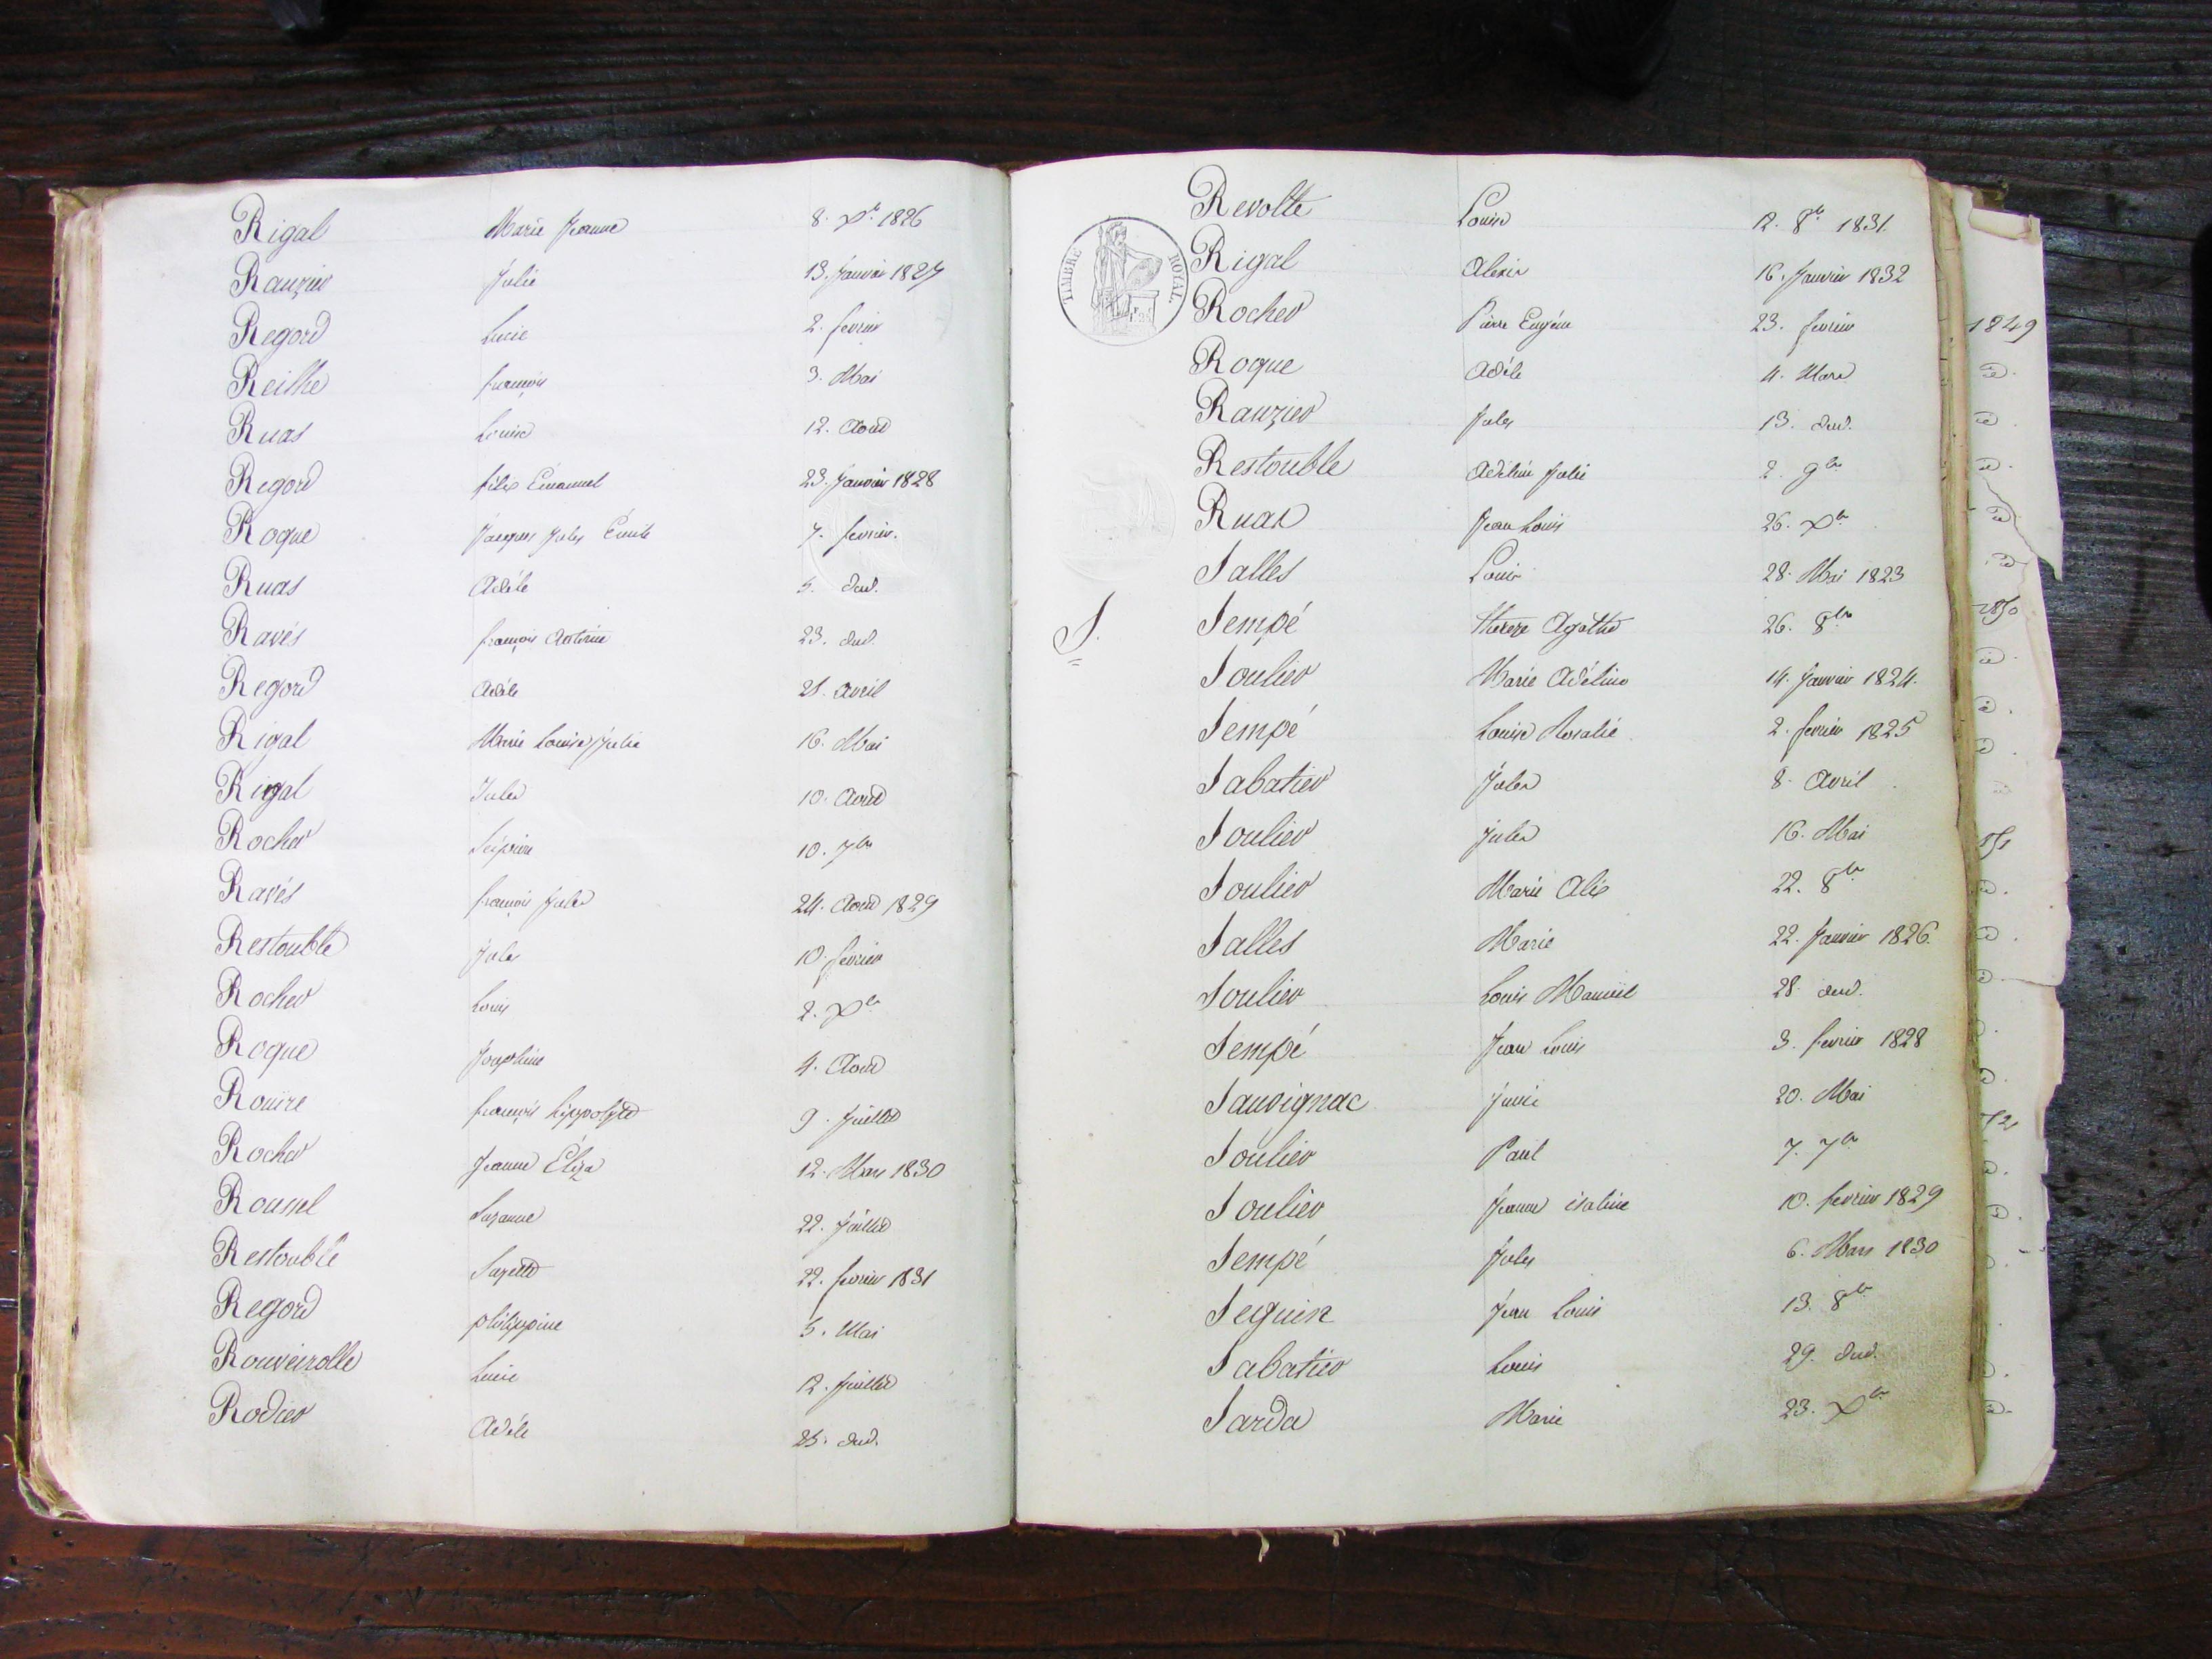 Rigal Marie Jeanne 8. Xbre 1826
Rauzier Julie 13. Janvier 1827
Regord Lucie 2. fevrier
Reilhe françois 3. Mai
Ruas Louise 12. Aout
Regord félix Émanuel 23. Janvier 1828
Roque Jacques Jules Émile 7. fevrier.
Ruas Adèle 5. dud.
Ravés françois Antoine 23. dud.
Regord Adèle 21. avril
Rigal Marie Louise Julie 16. Mai
Rigal Jules 10. Aout
Rocher 10. 7bre
Ravés françois Jules 24. Aout 1829
Restouble Jules 10. fevrier
Rocher Louis 2. Xbre
Roque Josephine 4. Aout
Rouïre françois hippolyte 9. Juillet
Rocher Jeanne Éliza 12. Mars 1830
Roussel Suzanne 22. Juillet
Restouble Suzette 22. fevrier 1831
Regord philippine 5. Mai
Rouveirolle Lucie 12. Juillet
Rodier Adèle 25. dud.
Revolte Louise 12. 8bre 1831.
TIMBRE ROYAL.
Rigal Alexis 16. Janvier 1832
Rocher Pierre Eugéne 23. fevrier
Roque Adèle 4. Mars
Rauzier Jules 13. dud.
Restouble Adeline Julie 2. 9bre
Ruas Jean Louis 26. Xbre
Salles Louis 28. Mai 1823
S. Sempé thereze Agathe 26. 8bre
Soulier Marie Adéline 14. Janvier 1824.
Sempé Louise Rosalie 2. fevrier 1825
Sabatier Jules 8. Avril
Soulier Jules 16. Mai
Soulier Marie Alix 22. 8bre
Salles Marie 22. Janvier 1826.
Soulier Louis Manuel 28. dud.
Sempé Jean Louis 3. fevrier 1828
Sauvignac Junie 20. Mai
Soulier Paul 7. 7bre
Soulier Jeanne isaline 10. fevrier 1829
Sempé Jules 6. Mars 1830
Seguin Jean Louis 13. 8bre
Sabatier Louis 29. dud.
Sarda Marie 23. Xbre
1849